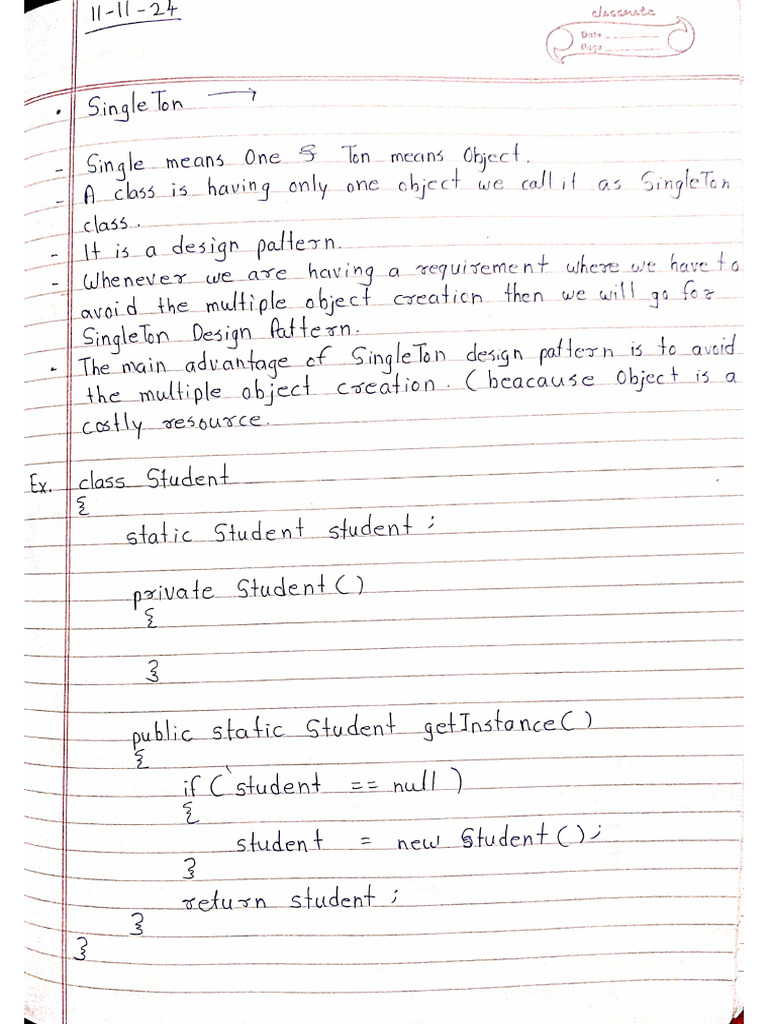 11-11-24
classmate
Date
Page
• SingleTon →
- Single means One & Ton means Object.
- A class is having only one object we call it as SingleTon
class.
- It is a design pattern.
- Whenever we are having a requirement where we have to
avoid the multiple object creation then we will go for
SingleTon Design Pattern.
- The main advantage of SingleTon design pattern is to avoid
the multiple object creation. (beacause Object is a
costly resource.
Ex. class Student
{
static Student student ;
private Student()
{
}
public static Student getInstance()
{
if( student == null )
{
student = new Student();
}
return student ;
}
}